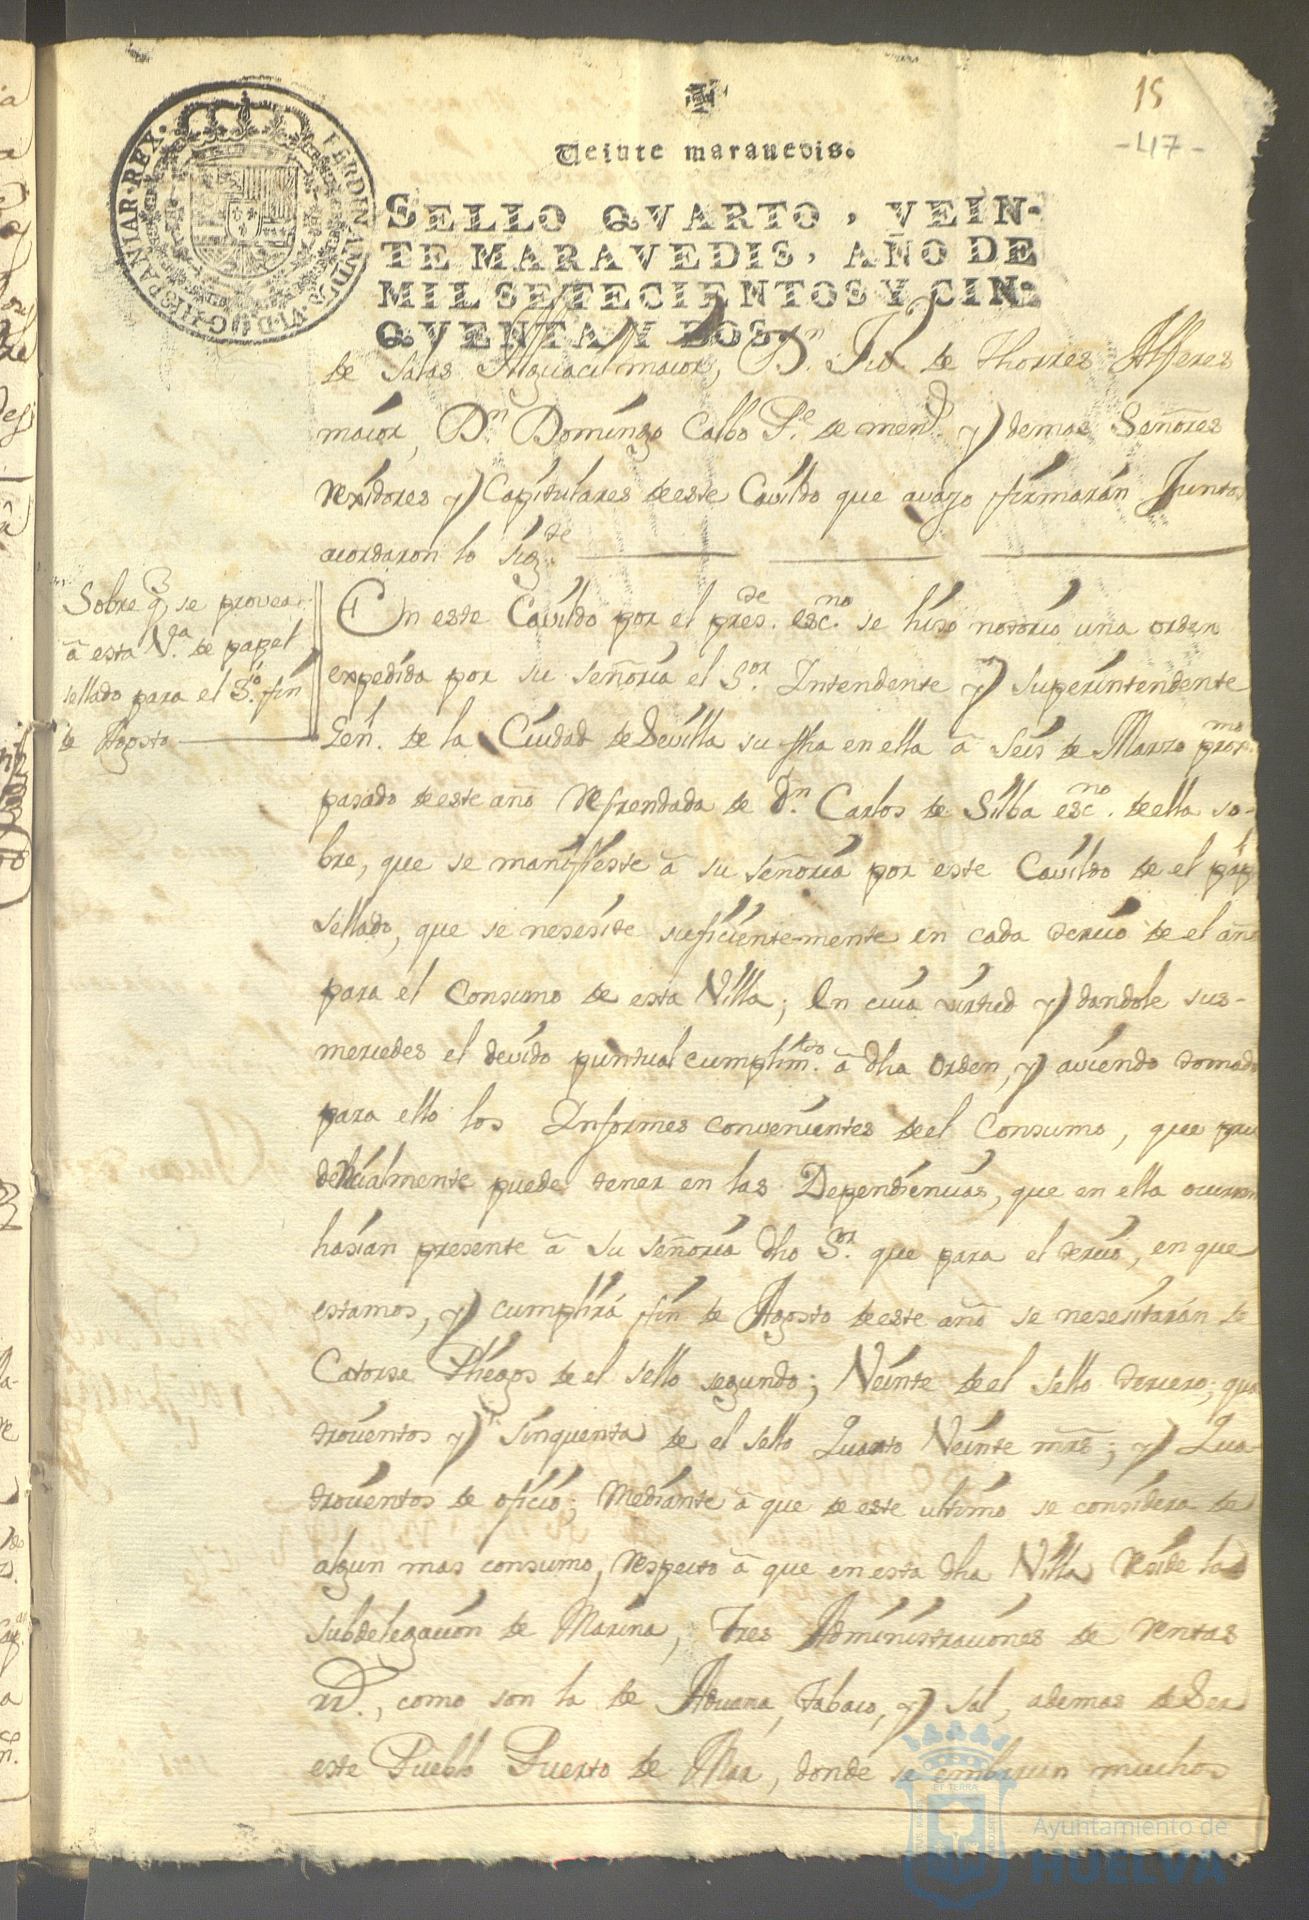 15
-47-
FERDINANDUS·VI·D·G·HISPANIAR·REX·
Veinte maravedis.
SELLO QVARTO, VEIN-
TE MARAVEDIS, AÑO DE
MIL SETECIENTOS Y CIN-
QVENTA Y DOS.
de Salas Alguacil maior, Dn. Juo. de Thorres Alferes
maior, Dn Domingo Calbo Pe. de mend. y demas Señores
Rexidores y Capitulares de este Cavildo que avajo firmarán Juntos
acordaron lo sigte.
Sobre q se provea
â esta Va. de papel
sellado para el So. fin
de Agosto
En este Cavildo por el presde. escno. se hiso notorio una orden
expedida por su señoria el Sor. Intendente y superintendente
Gen. de la Ciudad de Sevilla su fha en ella â seis de Marzo proxmo.
pasado de este año Refrendada de Dn. Carlos de Silba escno. de ella so-
bre, que se manifieste â su señoria por este Cavildo de el papl
sellado, que se nesesite suficiente-mente en cada tercio de el año
para el Consumo de esta Villa; En cuia virtud y dandole sus-
mercedes el devido puntual cumplimto. â dha Orden, y aviendo tomado
para ello los Informes convenientes de el Consumo, que pru
dencialmente puede tener en las Dependiencias, que en ella ocurren
hasian presente â su señoria dho Sor. que para el tercio, en que
estamos, y cumplirá fin de Agosto de este año se nesesitarán de
Catorse Plieg​os de el sello segundo; Veinte de el sello tercero; qua
trocientos y sinquenta de el sello Quarto Veinte mrs; y Qua
trocientos de oficio; Mediante â que de este ultimo se considera de
algun mas consumo, respecto â que en esta dha Villa Reside la
subdelegacion de Marina, Tres Administraciones de Rentas
Rs., como son la de Aduana, tabaco, y sal, ademas de Ser
este Pueblo Puerto de Mar, donde se embarcan muchos
ET TERRA
Ayuntamiento de
HUELVA